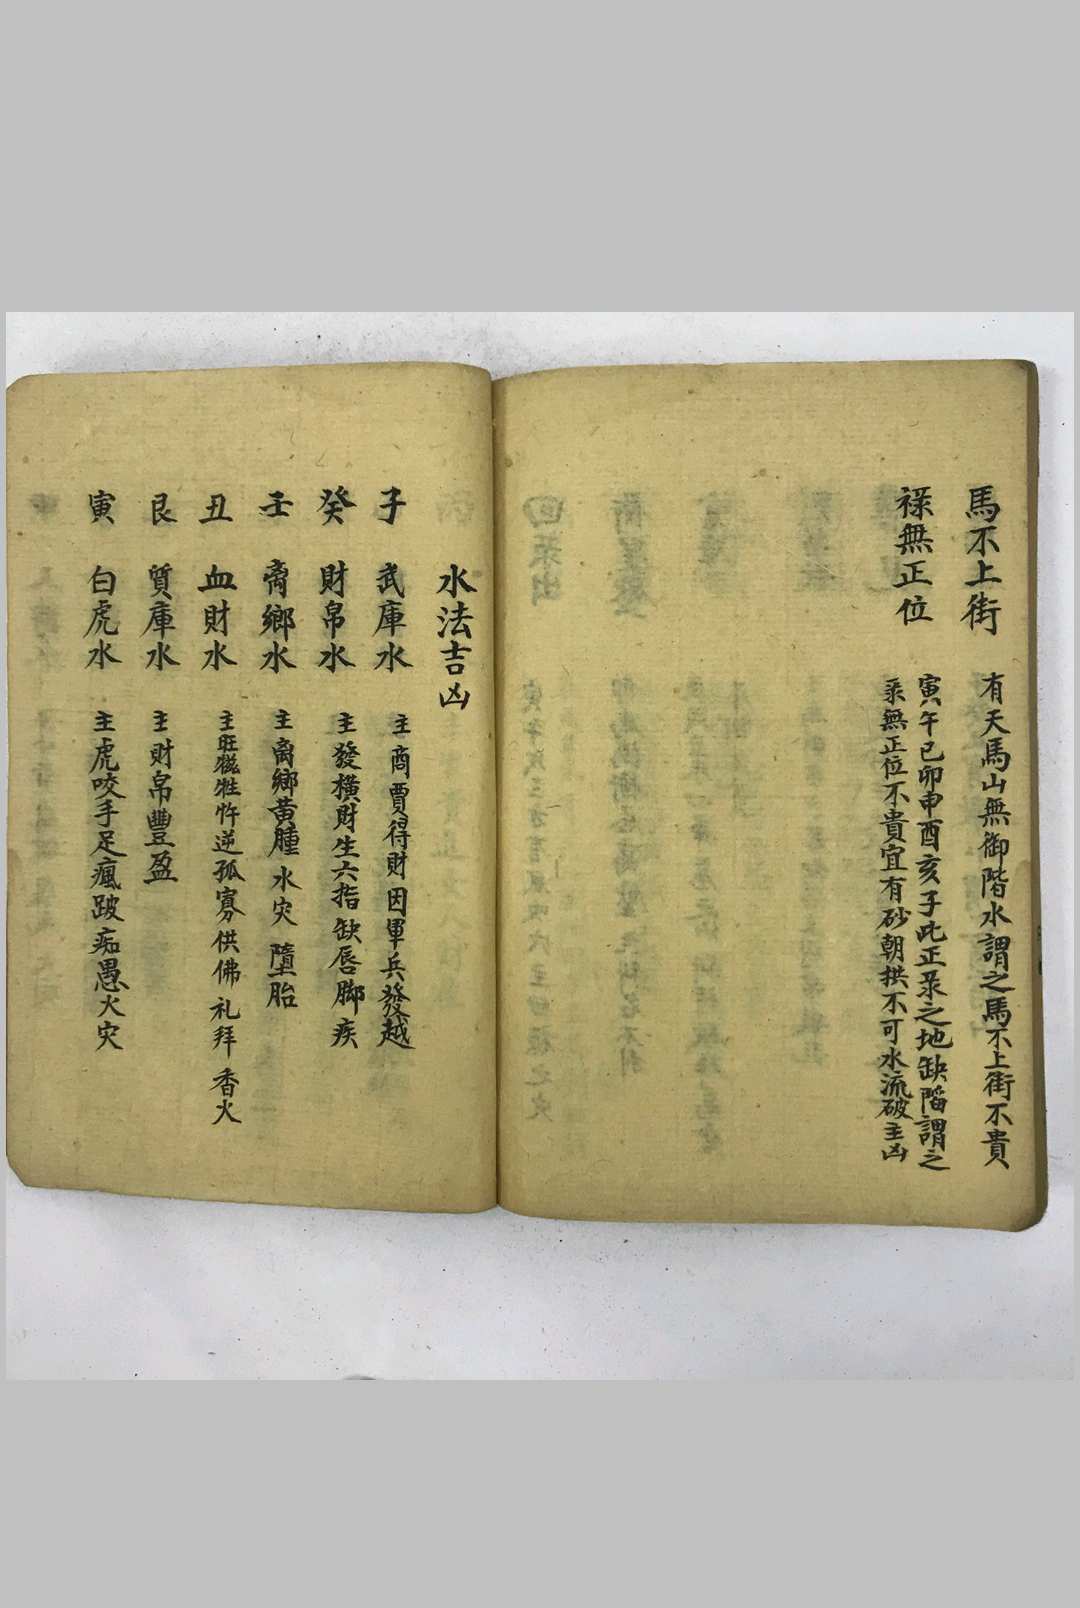 馬不上街 有天馬山無御階水謂之馬不上街不貴
祿無正位 寅午巳卯申酉亥子此正彔之地缺陷謂之
彔無正位不貴宜有砂朝拱不可水流破主凶
水法吉凶
子 武庫水 主商賈得財因軍兵發越
癸 財帛水 主發橫財生六指缺唇脚疾
壬 离鄉水 主离鄉黃腫水灾墮胎
丑 血財水 主旺牲忤逆孤寡供佛礼拜香火
艮 質庫水 主財帛豐盈
寅 白虎水 主虎咬手足瘋跛痴愚火灾